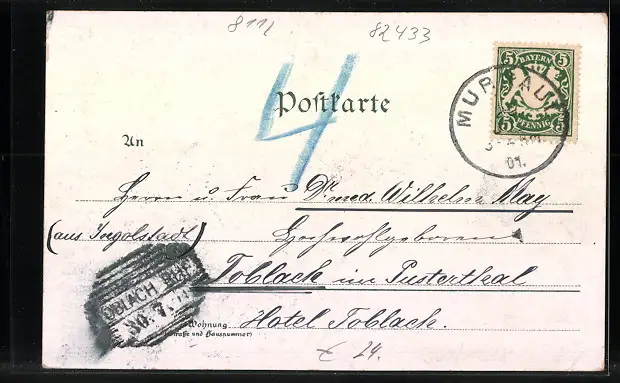 8111 82433
4
Postkarte
5 BAYERN 5
5 PFENNIG 5
MURNAU
01.
An
Herrn u. Frau Dr. med. Wilhelm May
(aus Ingolstadt) Hochwohlgeboren
Toblach im Pusterthal
TOBLACH
30. 7.
Wohnung
(Straße und Hausnummer)
Hotel Toblach.
24.